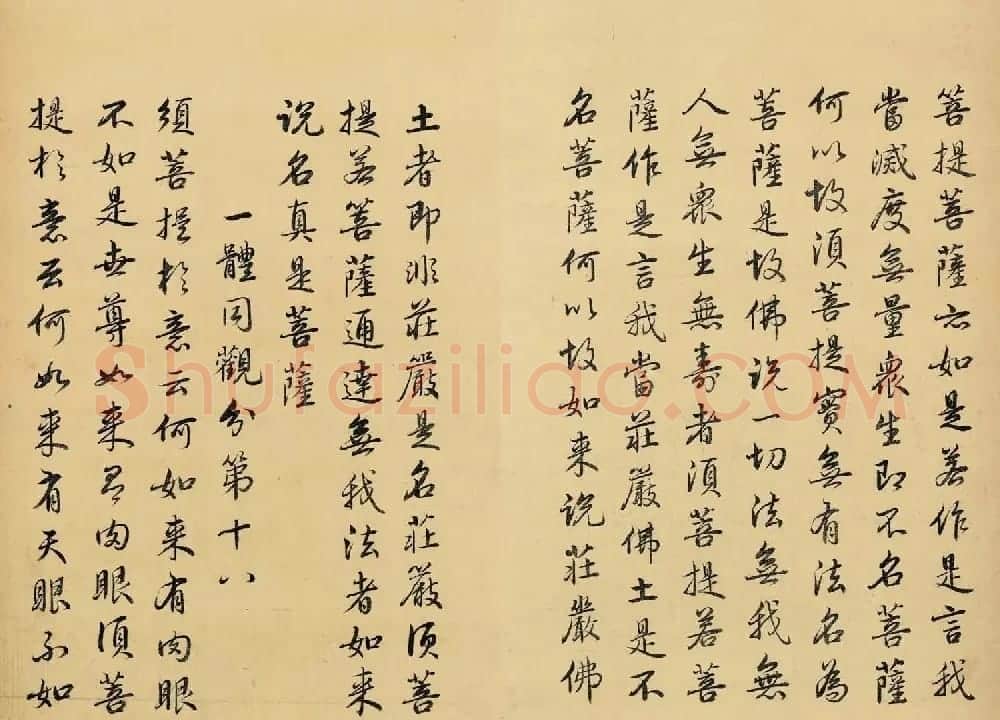 菩提菩薩亦如是若作是言我
當滅度無量衆生即不名菩薩
何以故須菩提實無有法名為
菩薩是故佛說一切法無我無
人無衆生無壽者須菩提若菩
薩作是言我當莊嚴佛土是不
名菩薩何以故如来說莊嚴佛
土者即非莊嚴是名莊嚴須菩
提若菩薩通達無我法者如来
說名真是菩薩
一體同觀分第十八
須菩提於意云何如来有肉眼
不如是世尊如来有肉眼須菩
提於意云何如来有天眼不如
Shufazilido.COM